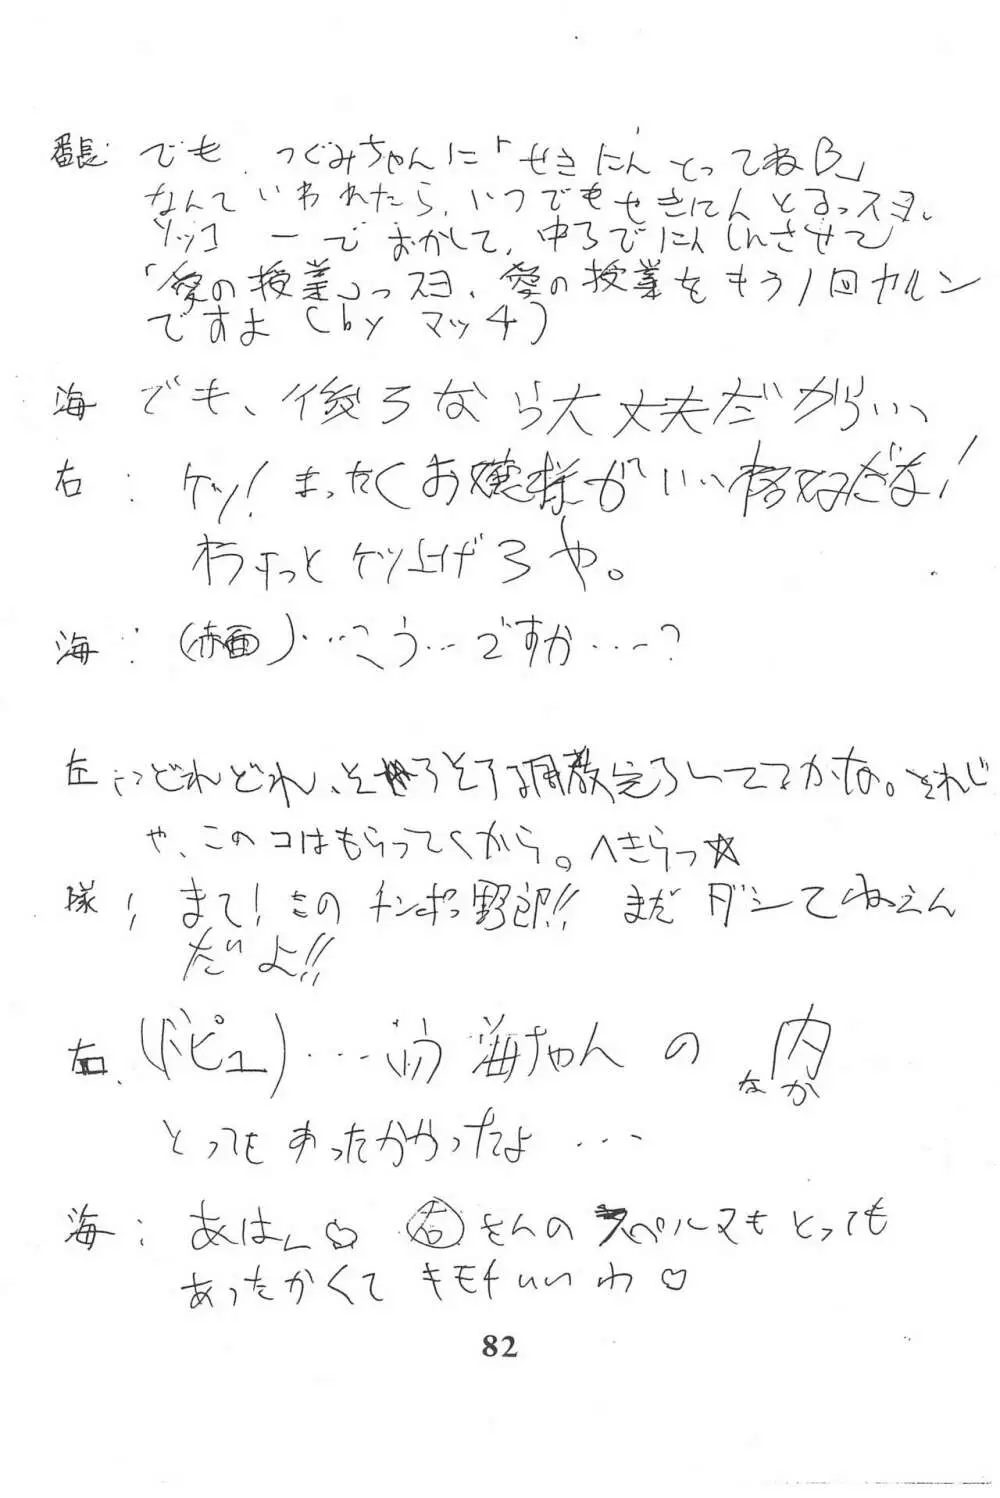 番長: でも、つぐみちゃんに「せきにんとってねB」
なんていわれたら、いつでもせきにんとるっスヨ。
ソッコーでおかして、中ろでにんしんさせて
「愛の授業」っスヨ、愛の授業をもう1回カルン
ですよ(by マッチ)
海 でも、後ろなら大丈夫だからいっ
右: ケッ!まったくお嬢様がいい格好だな!
もっとケツ上げろや。
海: (赤面)‥…こう…ですか…?
左: どれどれ、そろそろ調教完了してるかな。それじ
ゃ、このコはもらってくから。へきらっ☆
隊! まて!このチンポっ野郎!! まだダシてねえん
だよ!!
右. (ドピュ)…海ちゃんの内
なか
とってもあったかかったよ…
海: あはん♡ 右さんのスペルマもとっても
あったかくてキモチいいわ♡
82